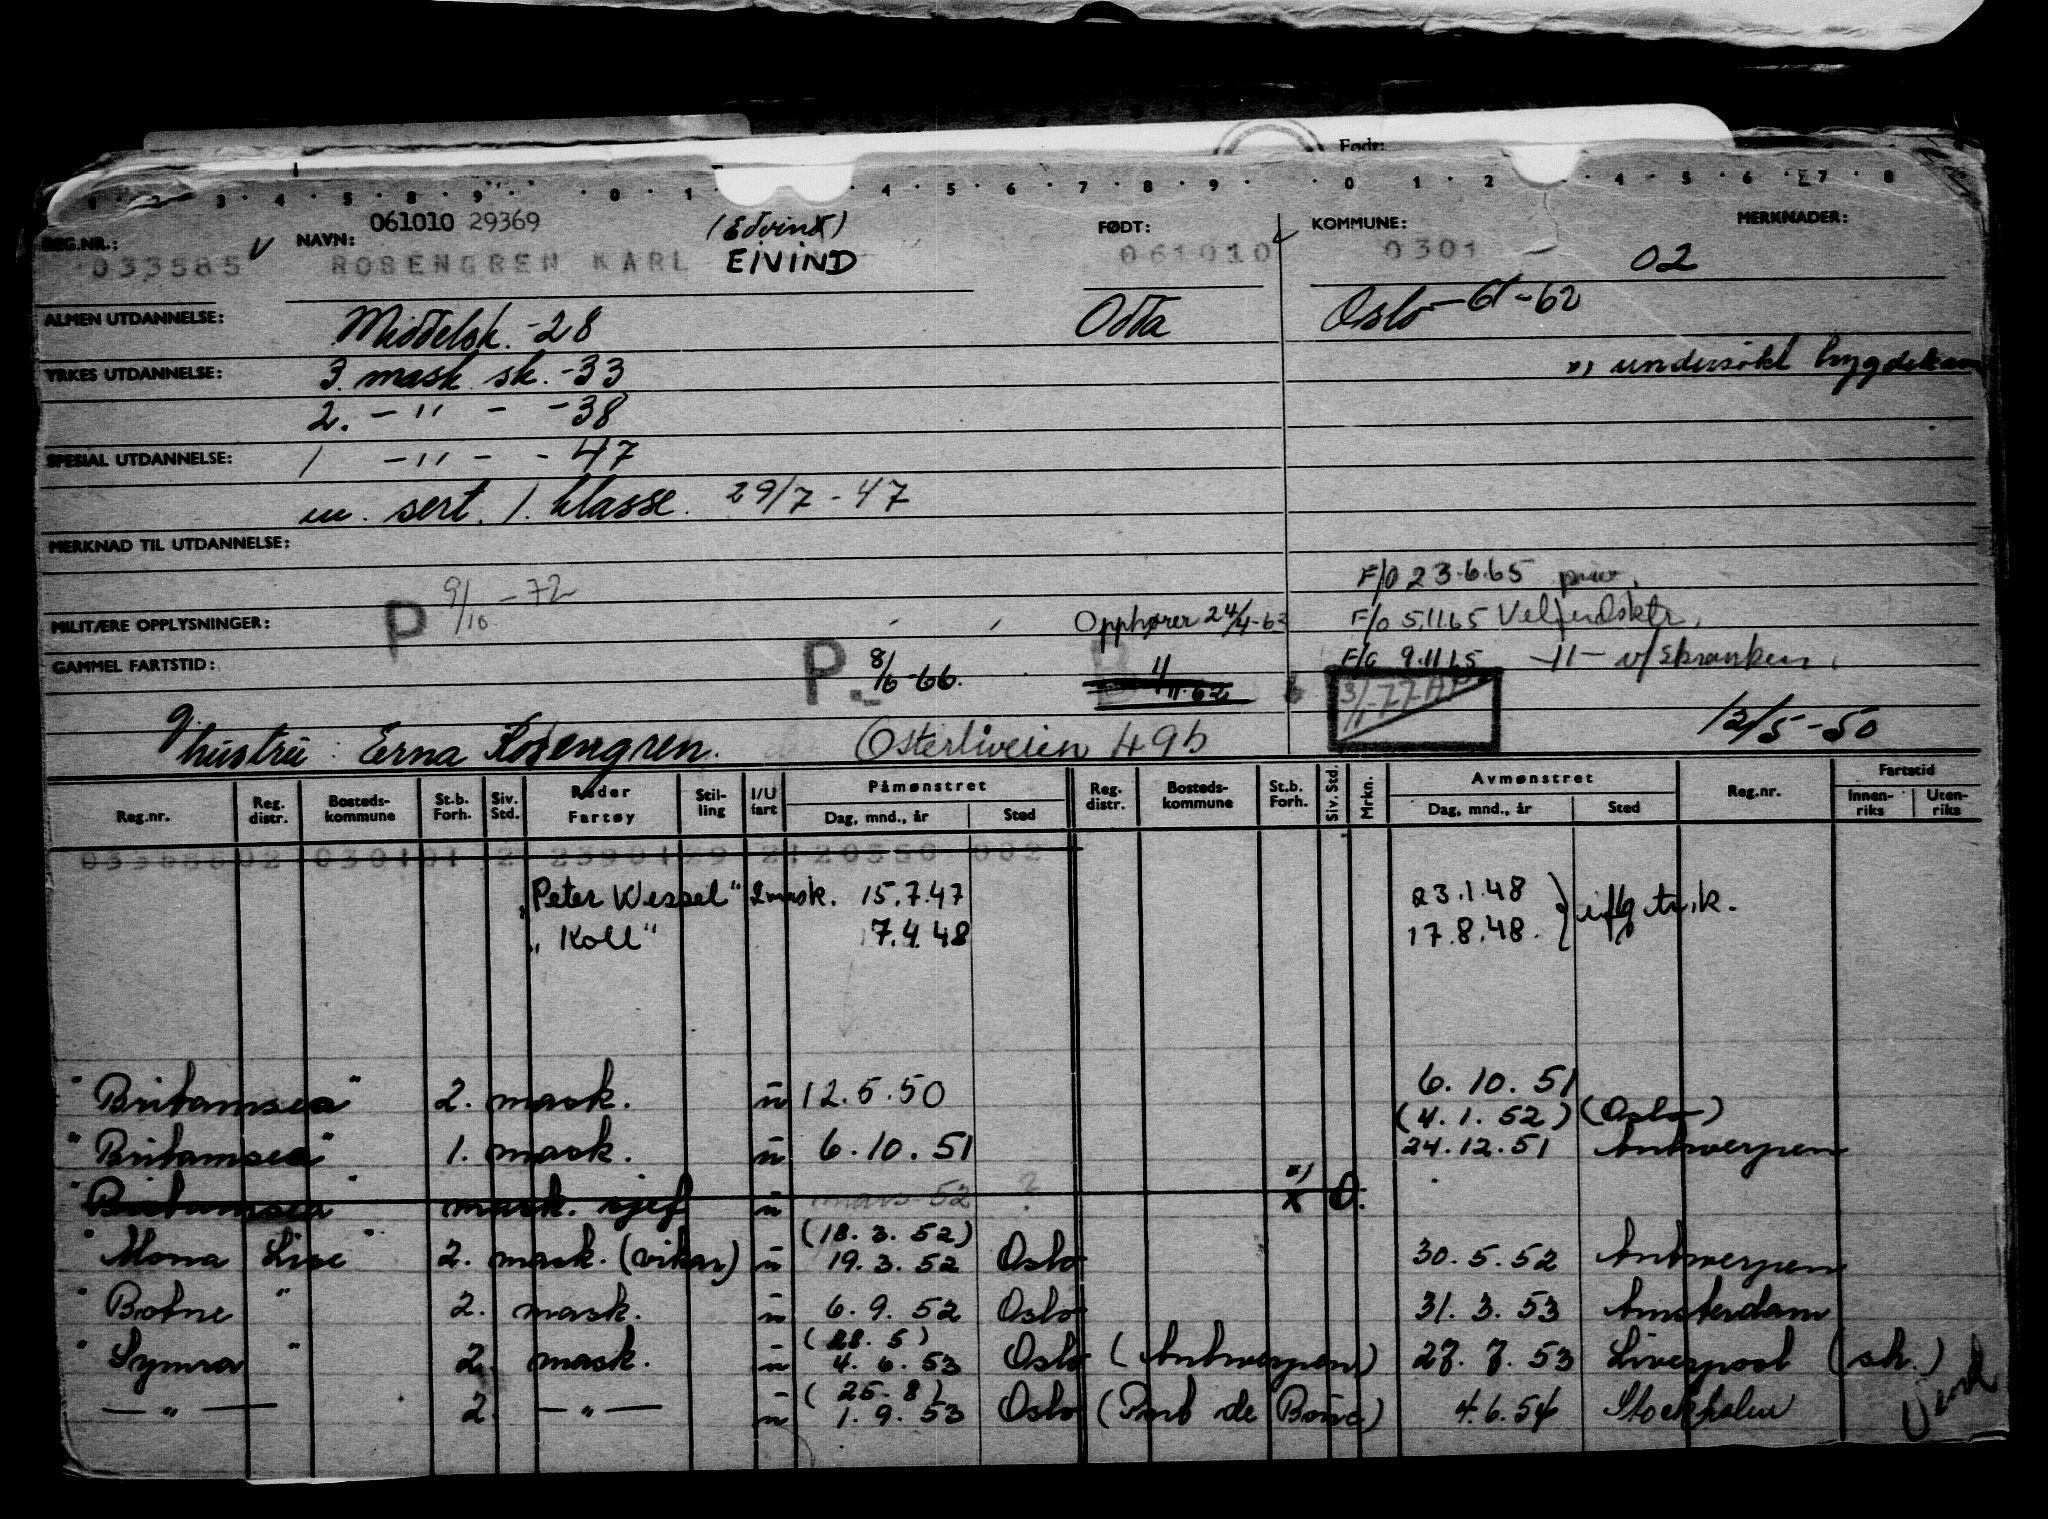 Født:
REG.NR.: 033585 NAVN: 061010 29369 (Edvind) FØDT: KOMMUNE: MERKNADER:
ROSENGREN KARL EIVIND 061010 0301 02
ALMEN UTDANNELSE: Middelsk. -28 Odda Oslo -61-62
YRKES UTDANNELSE: 3. mask. sk. -33 x) undersøkt
2. - " - -38
SPESIAL UTDANNELSE: 1 - " - - 47
m. sert. 1. klasse. 29/7 - 47
MERKNAD TIL UTDANNELSE:
P 9/10 -72 F/O 23.6.65
MILITÆRE OPPLYSNINGER: Opphører 24/4-63 F/O 5.11.65 Velferdsktr.
GAMMEL FARTSTID: P. 8/6-66. 4/11-62 F/O 9.11.65 -11- v/Skranken.
g. hustru: Erna Rosengren. Østerliveien 49b 12/5-50
Påmønstret Avmønstret Fartstid
Reg.nr. Reg. distr. Bosteds-kommune St.b. Forh. Siv. Std. Reder Fartøy Stil-ling I/U fart Dag, mnd., år Sted Reg. distr. Bosteds-kommune St.b. Forh. Siv. Std. Mrkn. Dag, mnd., år Sted Reg.nr. Innen-riks Uten-riks
"Peter Wessel" 2 mask. 15.7.47 23.1.48 } iflg
"Koll" 7.4.48 17.8.48.
"Britamsea" 2. mask. u 12.5.50 6.10.51
(4.1.52) (Oslo)
"Britamsea" 1. mask. u 6.10.51 24.12.51 Antwerpen
"Britamsea" mask. sjef u mars 52 ? x) x O.
(18.3.52)
"Mona Lise" 2. mask. (vikar) u 19.3.52 Oslo 30.5.52 Antwerpen
"Botne" 2. mask. u 6.9.52 Oslo 31.3.53 Amsterdam
(28.5)
"Symra" 2. mask. u 4.6.53 Oslo (Antwerpen) 27.7.53 Liverpool (sk.)
(25-8)
— " — 2. — " — u 1.9.53 Oslo (Port de Bouc) 4.6.54 Stockholm